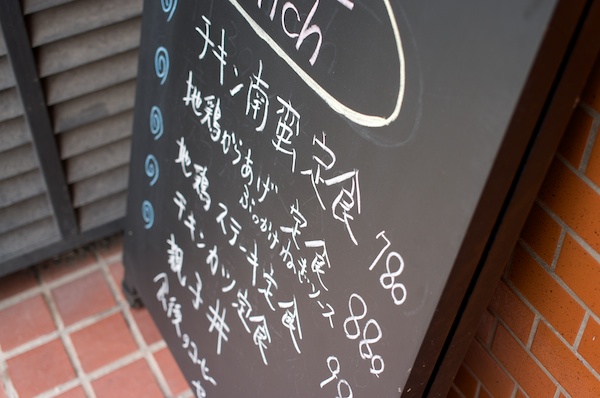 nch
チキン南蛮定食 780
地鶏からあげ定食 880
ぶっかけねぎソース
地鶏ステーキ定食
チキンカツ定食
親子丼
食後のコーヒー